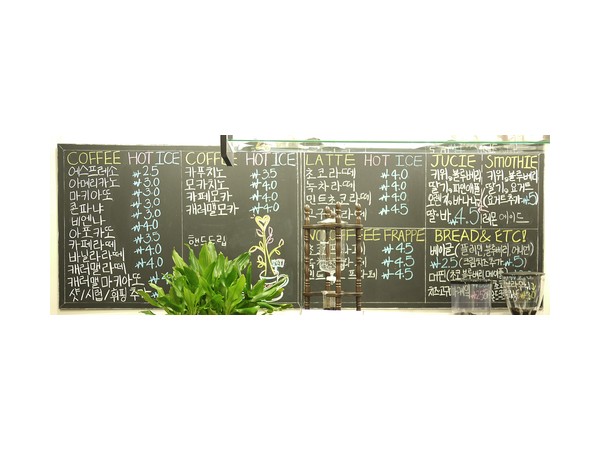 COFFEE HOT ICE
에스프레소 ₩2.5
아메리카노 ₩3.0
마키아또 ₩3.0
콘파냐 ₩3.0
비엔나 ₩3.0
아포카또 ₩4.0
카페라떼 ₩3.5
바닐라라떼 ₩4.0
캐러멜라떼 ₩4.0
캐러멜마키아또
샷/시럽/휘핑 추가
COFFEE HOT ICE
카푸치노 ₩3.5
모카치노 ₩4.0
카페모카 ₩4.0
캐러멜모카 ₩4.0
핸드드립
LATTE HOT ICE
초코라떼 ₩4.0
녹차라떼 ₩4.0
민트초코라떼 ₩4.5
₩4.5
FRAPPE
₩4.5
₩4.5
₩4.5
JUCIE
키위, 블루베리
딸기, 파인애플
바나나
딸·바 4.5
SMOTHIE
키위, 블루베리
딸기, 요거트
(요거트추가 ₩5)
레몬에이드
BREAD & ETC!
베이글 (플레인, 블루베리, 어니언)
₩2.5 (크림치즈추가 ₩5)
머핀 (초코, 블루베리,